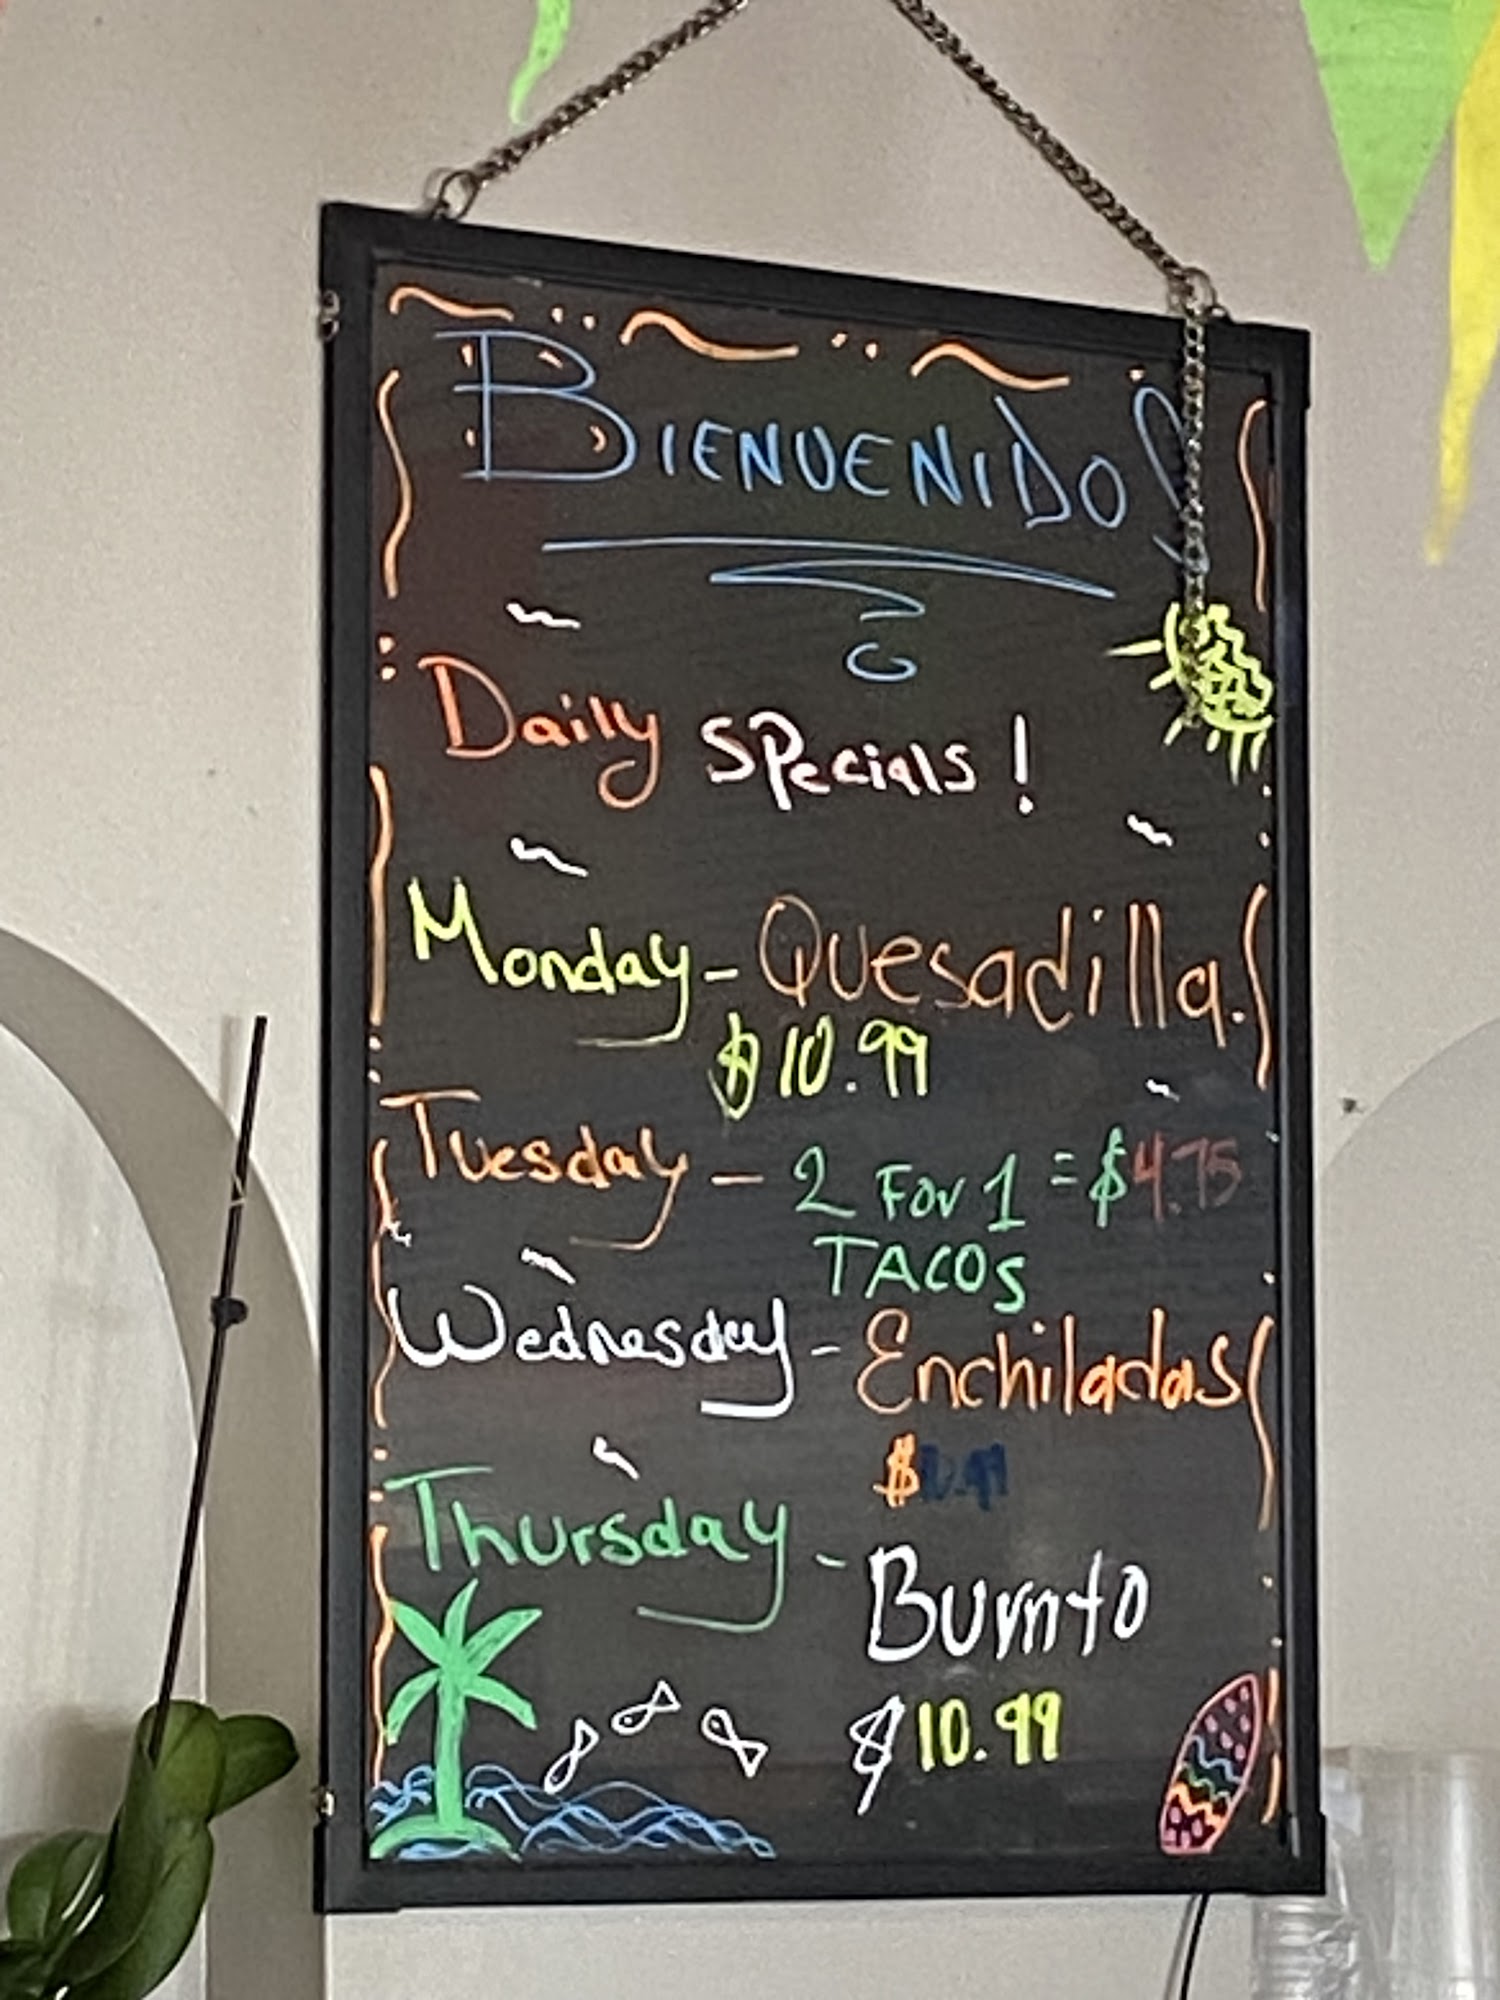 BIENVENIDOS
Daily Specials!
Monday - Quesadilla.
$10.99
Tuesday - 2 For 1 = $4.75
TACOS
Wednesday - Enchiladas
$10.99
Thursday - Burrito
$10.99